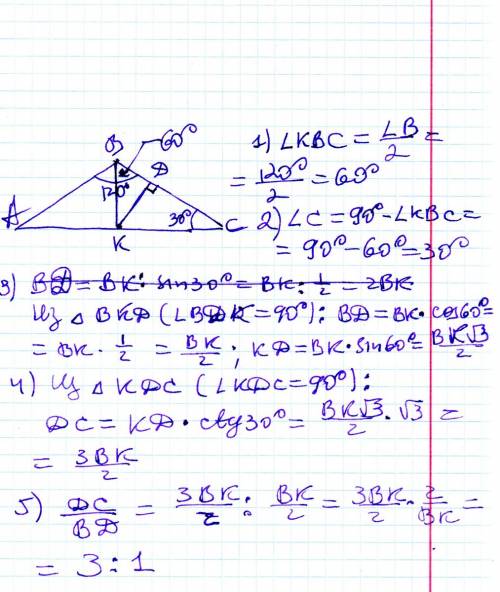 B 60°
D
120°
A
K
30°
C
1) ∠KBC = ∠B/2 =
= 120°/2 = 60°
2) ∠C = 90° - ∠KBC =
= 90° - 60° = 30°
3) BD = BK : sin30° = BK : 1/2 = 2BK
Из △ BKD (∠BDK = 90°): BD = BK · cos60° =
= BK · 1/2 = BK/2 ; KD = BK · sin60° = BK√3/2
4) Из △ KDC (∠KDC = 90°):
DC = KD · ctg30° = BK√3/2 · √3 =
= 3BK/2
5) DC/BD = 3BK/2 : BK/2 = 3BK/2 · 2/BK =
= 3 : 1